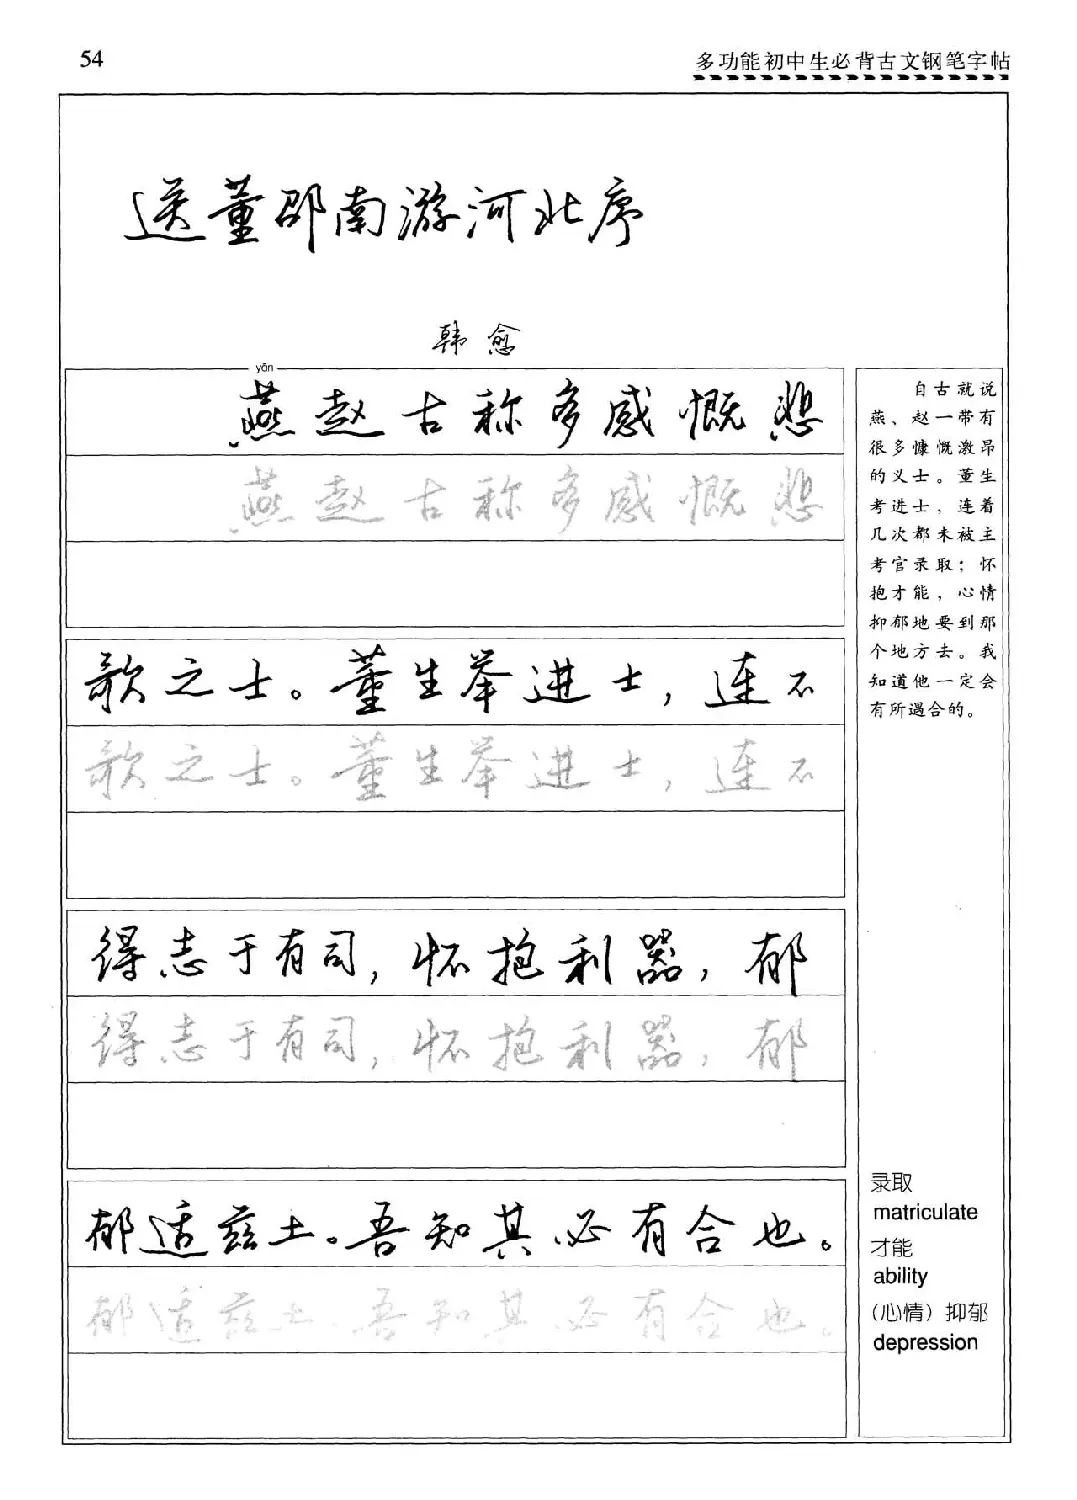 54
多功能初中生必背古文钢笔字帖
送董邵南游河北序
韩愈
yān
燕赵古称多感慨悲
燕赵古称多感慨悲
歌之士。董生举进士，连不
歌之士。董生举进士，连不
得志于有司，怀抱利器，郁
得志于有司，怀抱利器，郁
郁适兹土。吾知其必有合也。
郁适兹土。吾知其必有合也。
自古就说
燕、赵一带有
很多慷慨激昂
的义士。董生
考进士，连着
几次都未被主
考官录取；怀
抱才能，心情
抑郁地要到那
个地方去。我
知道他一定会
有所遇合的。
录取
matriculate
才能
ability
（心情）抑郁
depression